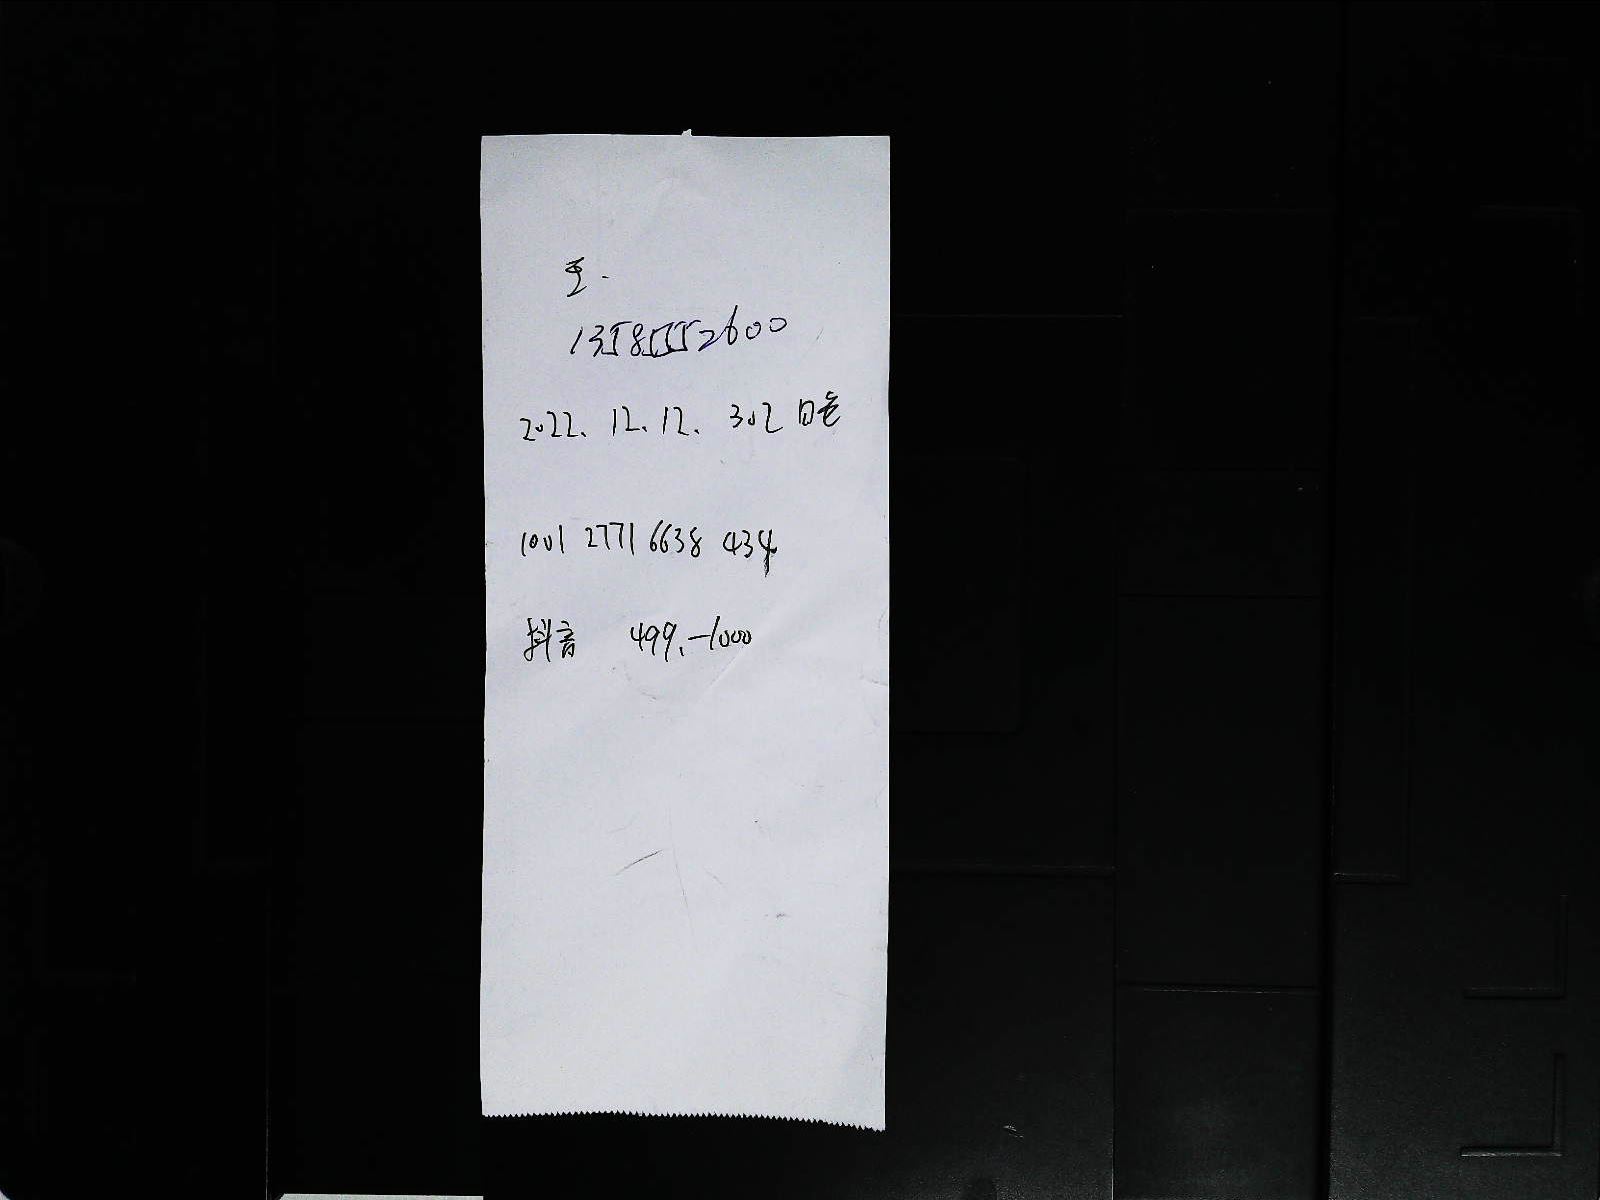 王.
13585552600
2022. 12. 12. 302 白色
1001 2771 6638 434
抖音 499.-1000